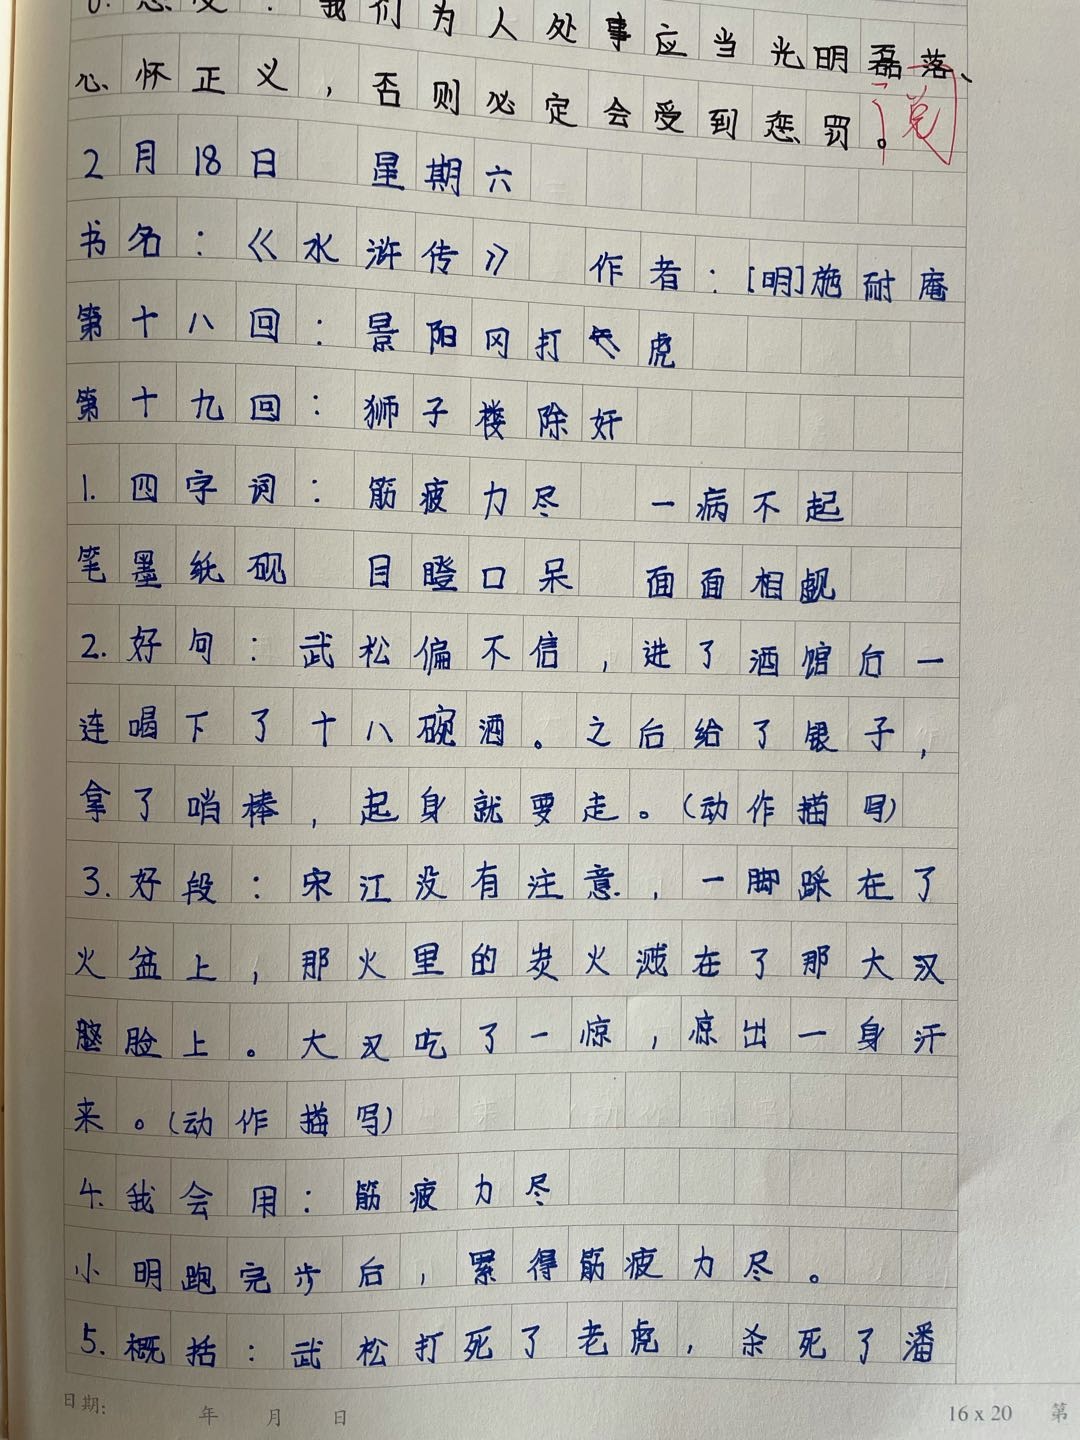 6.感受：我们为人处事应当光明磊落、
心怀正义，否则必定会受到惩罚。
2月18日 星期六
书名：《水浒传》 作者：[明]施耐庵
第十八回：景阳冈打虎
第十九回：狮子楼除奸
1.四字词：筋疲力尽 一病不起
笔墨纸砚 目瞪口呆 面面相觑
2.好句：武松偏不信，进了酒馆后一
连喝下了十八碗酒。之后给了银子，
拿了哨棒，起身就要走。（动作描写）
3.好段：宋江没有注意，一脚踩在了
火盆上，那火里的炭火溅在了那大汉
脸上。大汉吃了一惊，惊出一身汗
来。（动作描写）
4.我会用：筋疲力尽
小明跑完步后，累得筋疲力尽。
5.概括：武松打死了老虎，杀死了潘
日期： 年 月 日
16 x 20 第